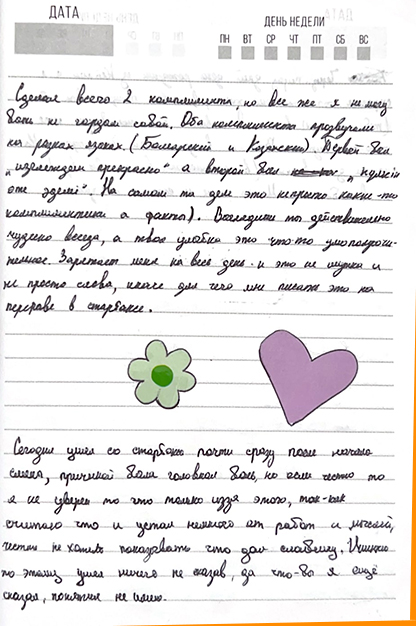 ДАТА
ДЕНЬ НЕДЕЛИ
ПН ВТ СР ЧТ ПТ СБ ВС
Сделал всего 2 комплимента, но все же я не могу
быть не гордым собой. Оба комплимента прозвучали
на разных языках (Болгарский и Казахский). Первой был
„изглеждат прекрасно" а второй был
эте эдемі". На самом то деле это непросто какие-то
комплиментики а факты). Выглядиш ты действительно
чудено всегда, а твоя улыбка это что-то умопомрачи-
темное. Заряжает меня на весь день и это не шутка и
не просто слова, иначе для чего мне писать это на
перерыве в старбаксе.
Сегодня ушел со старбакс почти сразу после начала
смены, причиной была головная боль, но если честно то
я не уверен то что только иззя этого, так-как
считаю что и устал немного от работ и мыслей,
честно не хотель показывать что дал слабину.
по этому ушел ничего не сказав, да что-бы я ещё
сказал, понятия не имею.